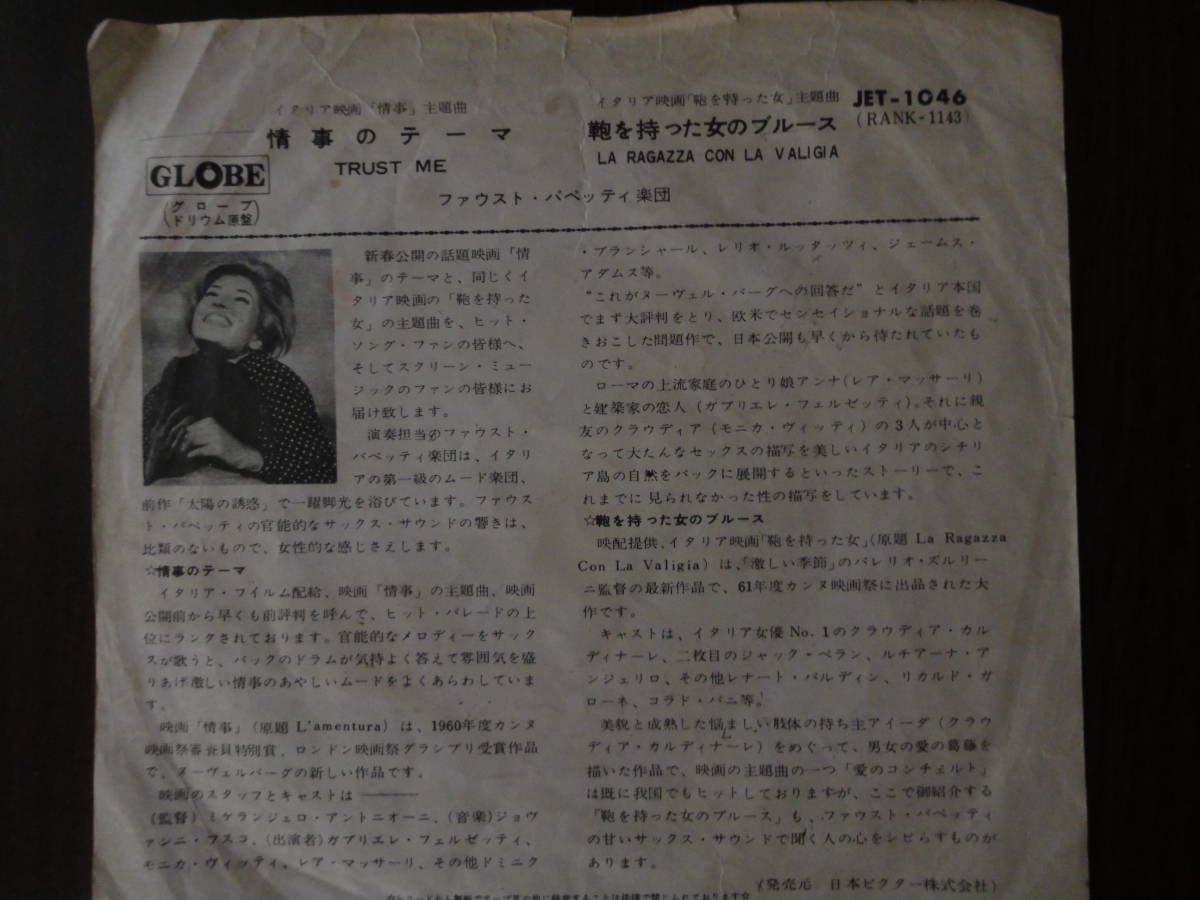 イタリア映画「情事」主題曲
情事のテーマ
TRUST ME
イタリア映画「鞄を持った女」主題曲
鞄を持った女のブルース
LA RAGAZZA CON LA VALIGIA
JET-1046
(RANK-1143)
GLOBE
(グローブ
ドリウム原盤)
ファウスト・パペッティ楽団
新春公開の話題映画「情
事」のテーマと、同じくイ
タリア映画の「鞄を持った
女」の主題曲を、ヒット・
ソング・ファンの皆様へ、
そしてスクリーン・ミュー
ジックのファンの皆様にお
届け致します。
演奏担当のファウスト・
パペッティ楽団は、イタリ
アの第一級のムード楽団、
前作「太陽の誘惑」で一躍脚光を浴びています。ファウス
ト・パペッティの官能的なサックス・サウンドの響きは、
比類のないもので、女性的な感じさえします。
☆情事のテーマ
イタリア・フイルム配給、映画「情事」の主題曲、映画
公開前から早くも前評判を呼んで、ヒット・パレードの上
位にランクされております。官能的なメロディーをサック
スが歌うと、バックのドラムが気持よく答えて雰囲気を盛
りあげ激しい情事のあやしいムードをよくあらわしていま
す。
映画「情事」(原題 L'amentura) は、1960年度カンヌ
映画祭審査員特別賞、ロンドン映画祭グランプリ受賞作品
で、ヌーヴェルバーグの新しい作品です。
映画のスタッフとキャストは――――
(監督) ミケランジェロ・アントニオーニ、(音楽) ジョヴ
ァンニ・フスコ、(出演者) ガブリエレ・フェルゼッティ、
モニカ・ヴィッティ、レア・マッサーリ、その他ドミニク
・ブランシャール、レリオ・ルッタッツィ、ジェームス・
アダムス等。
“これがヌーヴェル・バーグへの回答だ”とイタリア本国
でまず大評判をとり、欧米でセンセイショナルな話題を巻
きおこした問題作で、日本公開も早くから待たれていたも
のです。
ローマの上流家庭のひとり娘アンナ (レア・マッサーリ)
と建築家の恋人 (ガブリエレ・フェルゼッティ)。それに親
友のクラウディア (モニカ・ヴィッティ) の3人が中心と
なって大たんなセックスの描写を美しいイタリアのシチリ
ア島の自然をバックに展開するといったストーリーで、こ
れまでに見られなかった性の描写をしています。
☆鞄を持った女のブルース
映配提供、イタリア映画「鞄を持った女」(原題 La Ragazza
Con La Valigia) は、「激しい季節」のバレリオ・ズルリー
ニ監督の最新作品で、61年度カンヌ映画祭に出品された大
作です。
キャストは、イタリア女優 No. 1のクラウディア・カル
ディナーレ、二枚目のジャック・ペラン、ルチアーナ・ア
ンジェリロ、その他レナート・バルディン、リカルド・ガ
ローネ、コラド・パニ等。
美貌と成熟した悩ましい肢体の持ち主アイーダ (クラウ
ディア・カルディナーレ) をめぐって、男女の愛の葛藤を
描いた作品で、映画の主題曲の一つ「愛のコンチェルト」
は既に我国でもヒットしておりますが、ここで御紹介する
「鞄を持った女のブルース」も、ファウスト・パペッティ
の甘いサックス・サウンドで聞く人の心をシビらすものが
あります。
(発売元 日本ビクター株式会社)